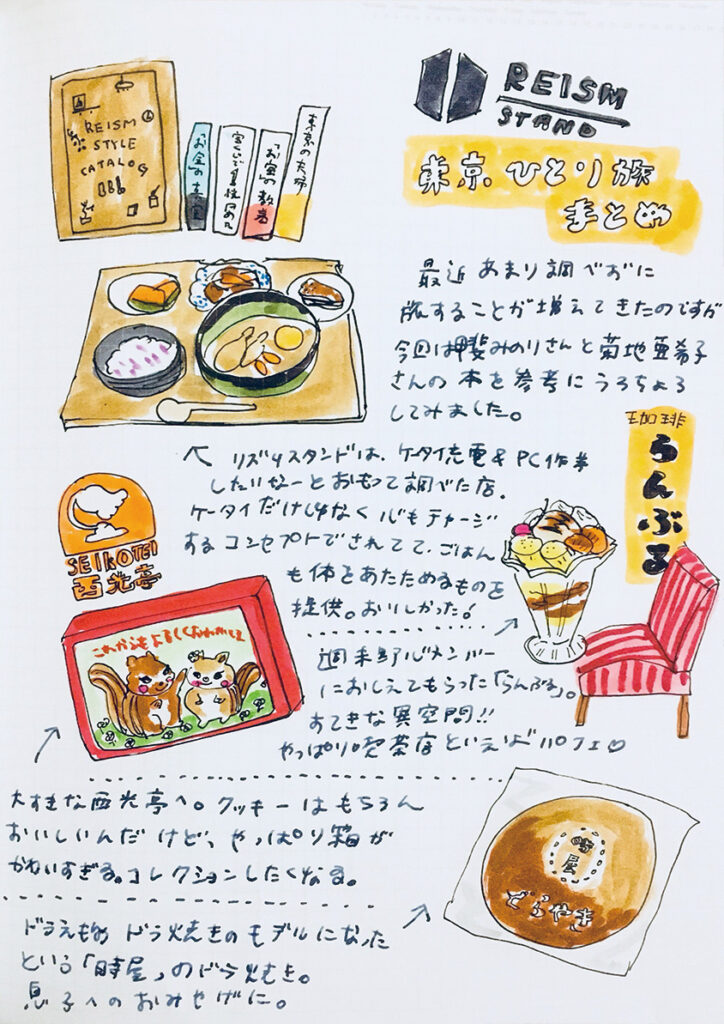 REISM
STAND
東京ひとり旅
まとめ
REISM
STYLE
CATALOG
お金の
お金の教養
東京の夫婦
最近あまり調べずに
旅することが増えてきたのですが
今回は甲斐みのりさんと菊地亜希子
さんの本を参考にうろちょろ
してみました。
リズムスタンドは、ケータイ充電&PC作業
したいなーとおもって調べた店。
ケータイだけじゃなく心もチャージ
するコンセプトでされてて、ごはん
も体をあたためるものを
提供。おいしかった!
SEIKOTEI
西光亭
これからもよろしくおねがいします
珈琲
らんぶる
週末野心メンバー
におしえてもらった「らんぶる」。
すてきな異空間!!
やっぱり喫茶店といえばパフェ♡
大すきな西光亭へ。クッキーはもちろん
おいしいんだけど、やっぱり箱が
かわいすぎる。コレクションしたくなる。
時屋
どらやき
ドラえもんのドラ焼きのモデルになった
という「時屋」のドラ焼き。
息子へのおみやげに。